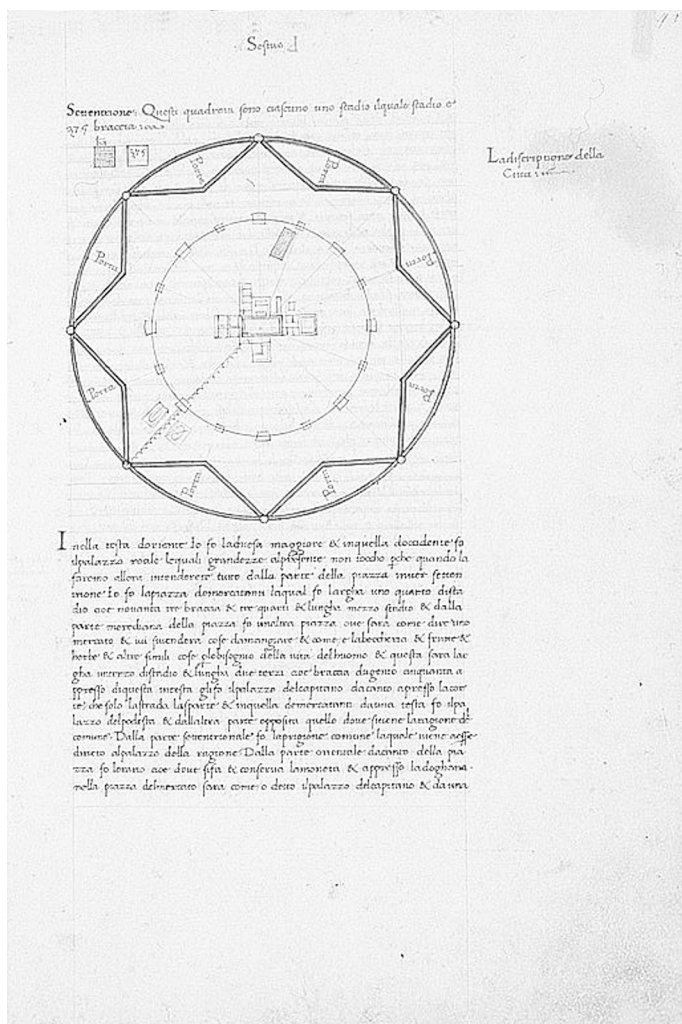 Sestus
43
Setentrione. Questi quadretti sono ciascuno uno stadio ilquale stadio e
375 braccia
375
La discriptione della
Citta
Porta
Porta
Porta
Porta
Porta
Porta
Porta
Porta
Inella testa doriente Io fo lachiesa maggiore & inquella doccidente fo
ilpalazzo reale lequali grandezze alpresente non toccho perche quando la
faremo allora intenderete tutto dalla parte della piazza inver setten
trione Io fo lapiazza demercatanti laqual fo largha uno quarto dista
dio cioe novanta tre braccia & tre quarti & lungha mezzo stadio & dalla
parte meridiana della piazza fo unaltra piazza ove sara come dire uno
mercato & ivi sivendera cose damangiare & come e labeccheria & frutte &
herbe & altre simili cose chebisogno della vita delhuomo & questa fara lar
gha unterzo distadio & lungha due terzi cioe braccia dugento cinquanta a
ppresso diquesta intesta glifo ilpalazzo delcapitano dacanto apresso lacor
te che solo lastrada lasparte & inquella demercatanti dauna testa fo ilpa
lazzo delpodesta & dallaltra parte opposita quello dove sitiene laragione del
comune. Dalla parte settentrionale fo laprigione comune laquale viene
dirieto alpalazzo della ragione. Dalla parte orientale dacanto della pia
zza fo lerario cioe dove sifa & conserva lamoneta & appresso ladoghana.
nella piazza delmercato sara come o detto ilpalazzo delcapitano & dauna